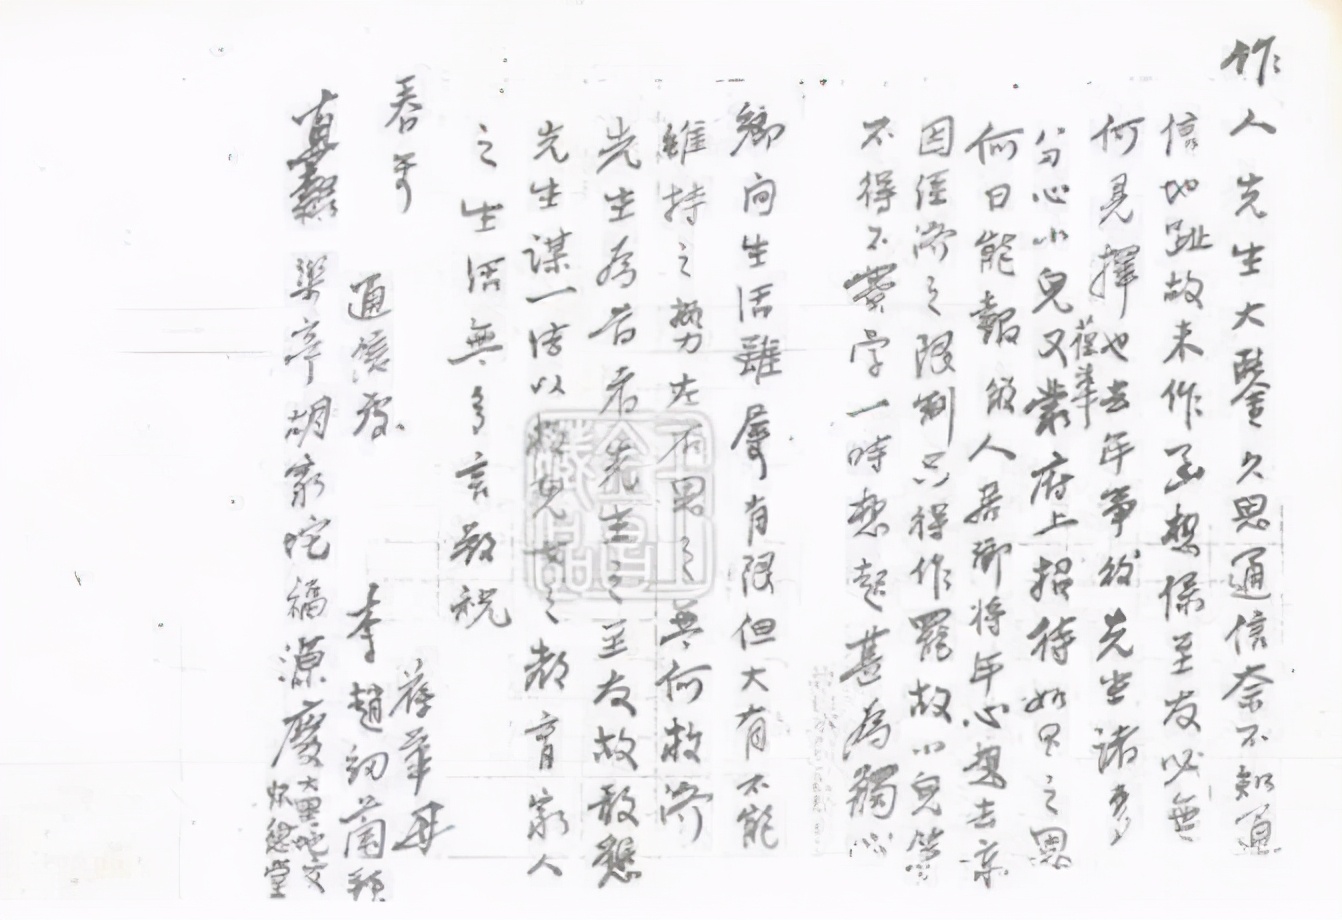 作人先生大鑒久思通信奈不知通
信地趾故未作函想係至友必無
何見擇也去年爭後先生諸多
葆華
分心小兒又蒙府上招待如此之恩
何日能報敝人居鄉將年心想去京
因經濟之限制只得作罷故小兒等
不得不費学一時想起甚為觸心
鄉向生活雖屬有限但大有不能
維持之勢左右思之無何救濟
先生為昔看先生之至友故敢懇
先生謀一法以救兒女之教育家人
之生活無多言敬祝
春安
葆華母
通信處 李趙紉蘭
直 樂亭胡家坨福源慶大黑坨交
懷德堂